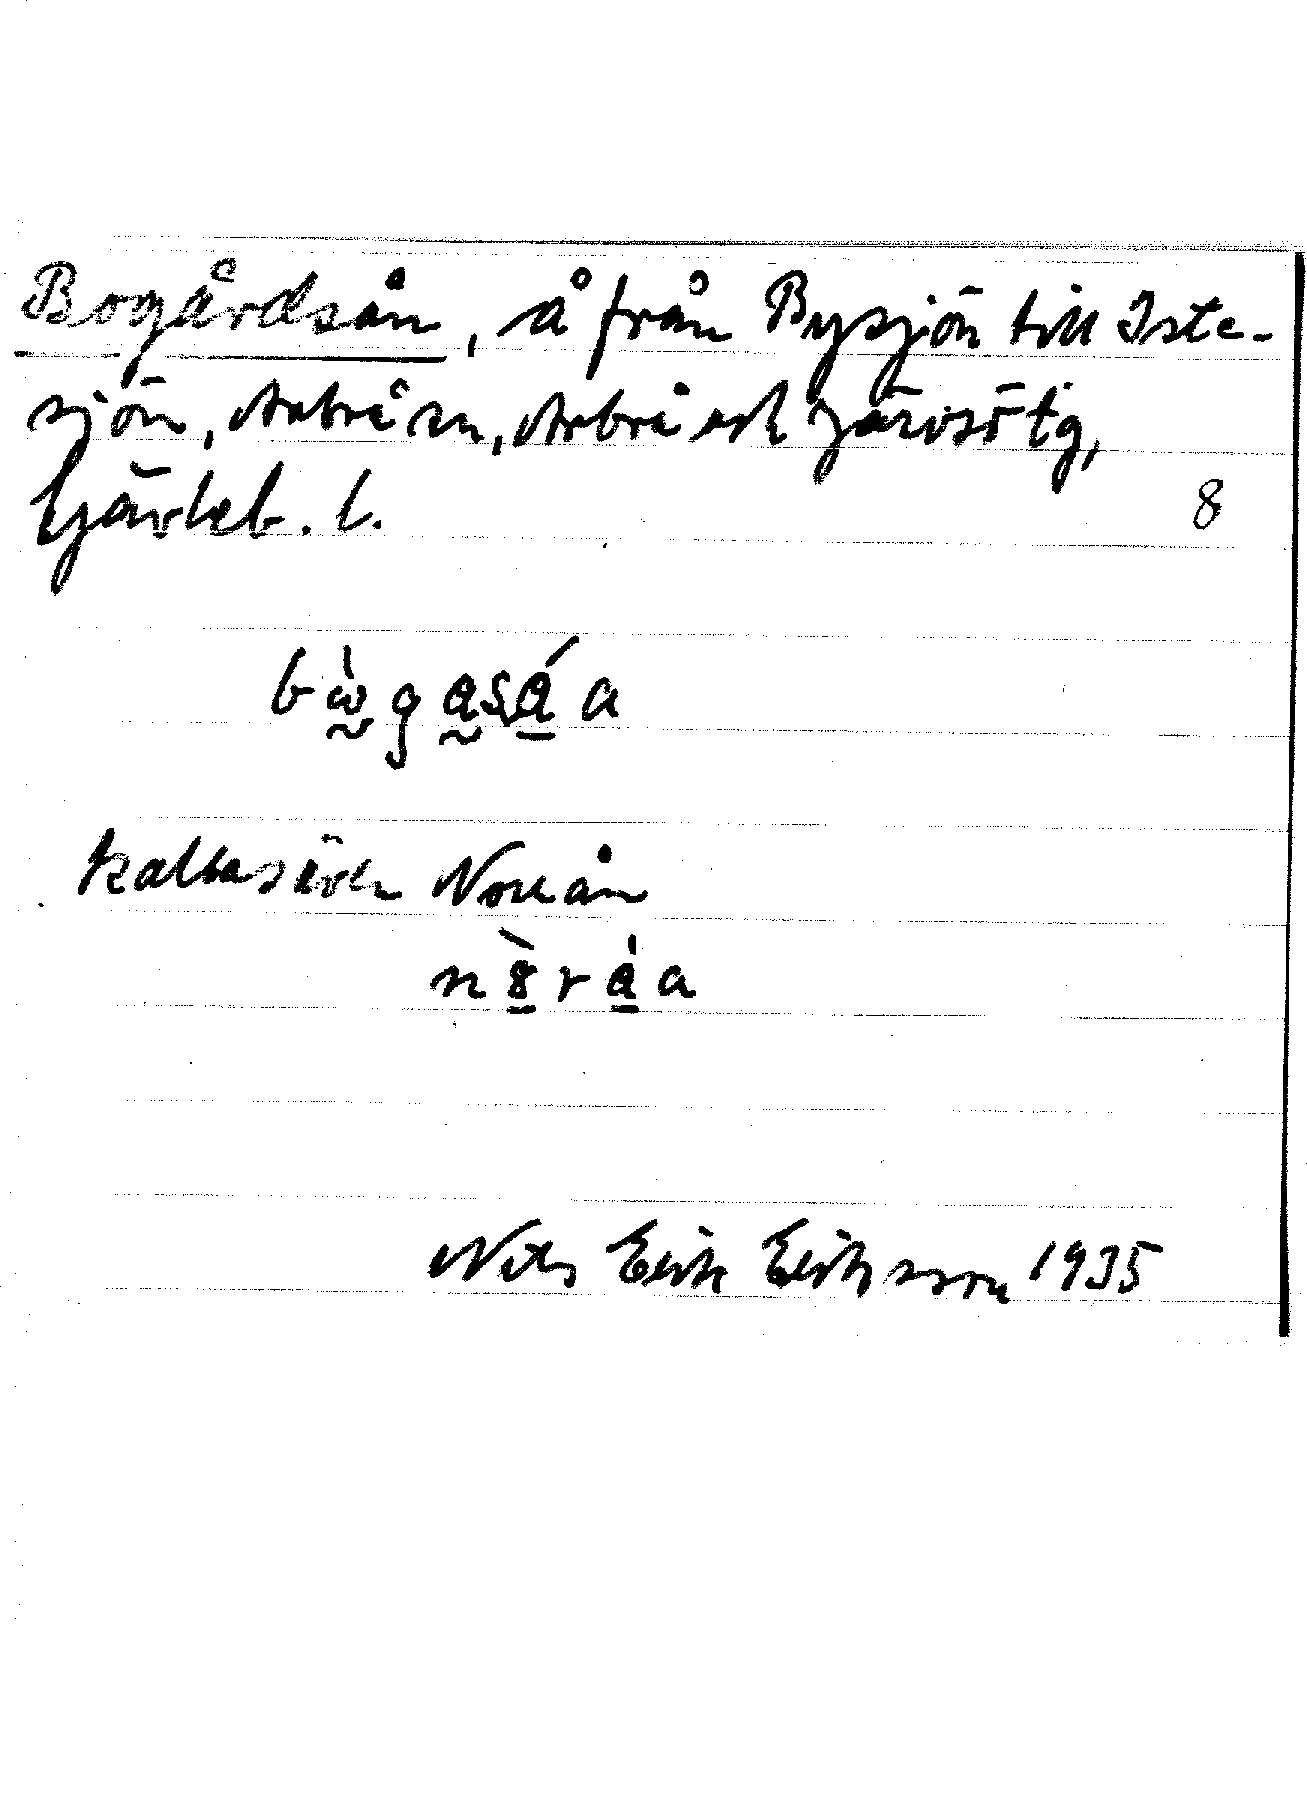 Bogårdsån, å från Bysjön till Iste-
sjön, Arbrå sn, Arbrå och Järvsö tg,
Gävleb. l.
8
bὼgasáa
kallas även Norrån
nàráa
Nils Erik Eriksson 1935